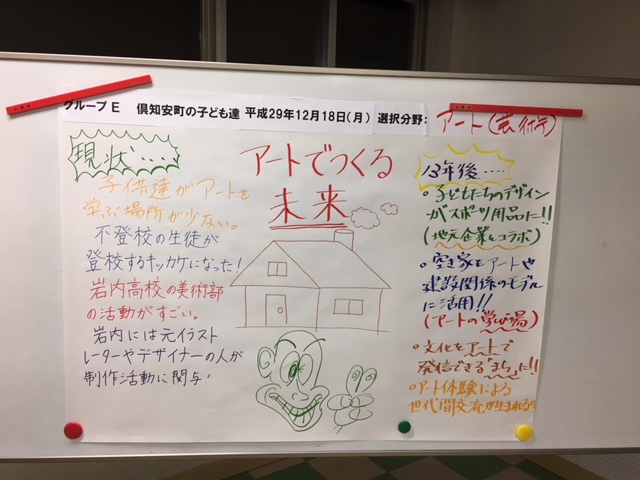 グループE 倶知安町の子ども達 平成29年12月18日(月) 選択分野: アート(芸術)
アートでつくる
未来
現状....
子供達がアートを
学ぶ場所が少ない。
不登校の生徒が
登校するキッカケになった!
岩内高校の美術部
の活動がすごい。
岩内には元イラスト
レーターやデザイナーの人が
制作活動に関与!
13年後....
・子どもたちのデザイン
がスポーツ用品に!!
(地元企業とコラボ)
・空き家をアートや
建設関係のモデル
に活用!!
(アートの学びの場)
・文化をアートで
発信できる「まち」に!!
・アート体験による
世代間交流が生まれる!!